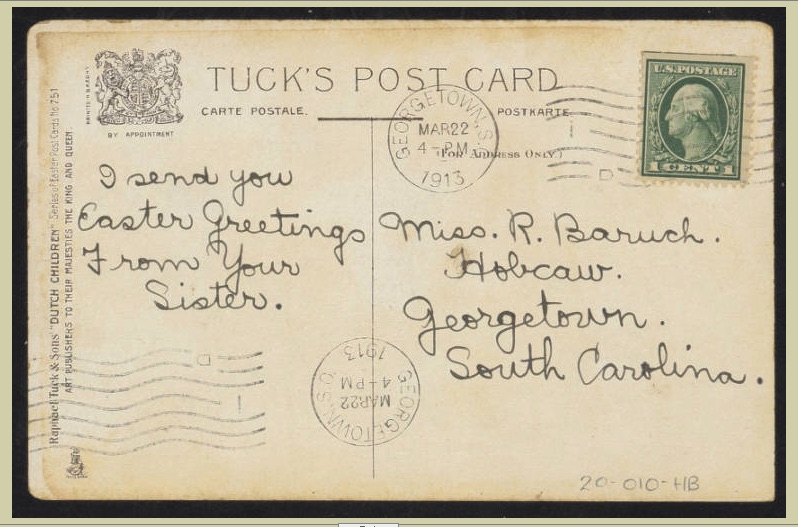 TUCK'S POST CARD
CARTE POSTALE.
POSTKARTE
BY APPOINTMENT
(FOR ADDRESS ONLY)
GEORGETOWN, S.C.
MAR 22
4-PM
1913
U.S. POSTAGE
1 CENT 1
I send you
Easter Greetings
From Your
Sister.
Miss. R. Baruch.
Hobcaw.
Georgetown.
South Carolina.
GEORGETOWN, S.C.
MAR 22
4-PM
1913
Raphael Tuck & Sons "DUTCH CHILDREN" Series of Easter Post Cards No 751
ART PUBLISHERS TO THEIR MAJESTIES THE KING AND QUEEN.
20-010-HB